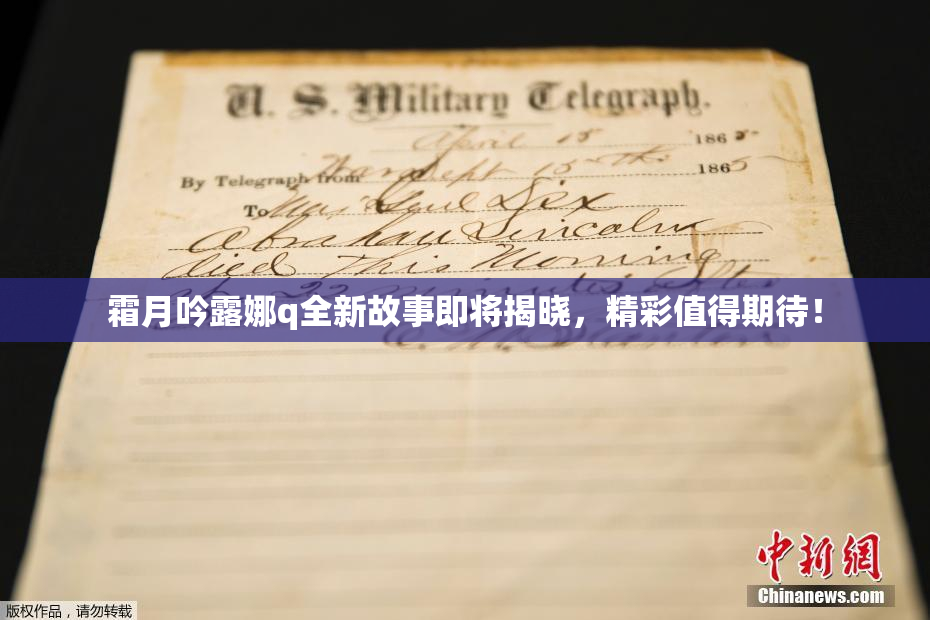 U. S. Military Telegraph.
April 15 1865
By Telegraph from War Dept 15th 1865
To Maj Genl Dix
Abraham Lincoln
died This Morning
at 22 minutes after
霜月吟露娜q全新故事即将揭晓，精彩值得期待！
中新网
Chinanews.com
版权作品，请勿转载